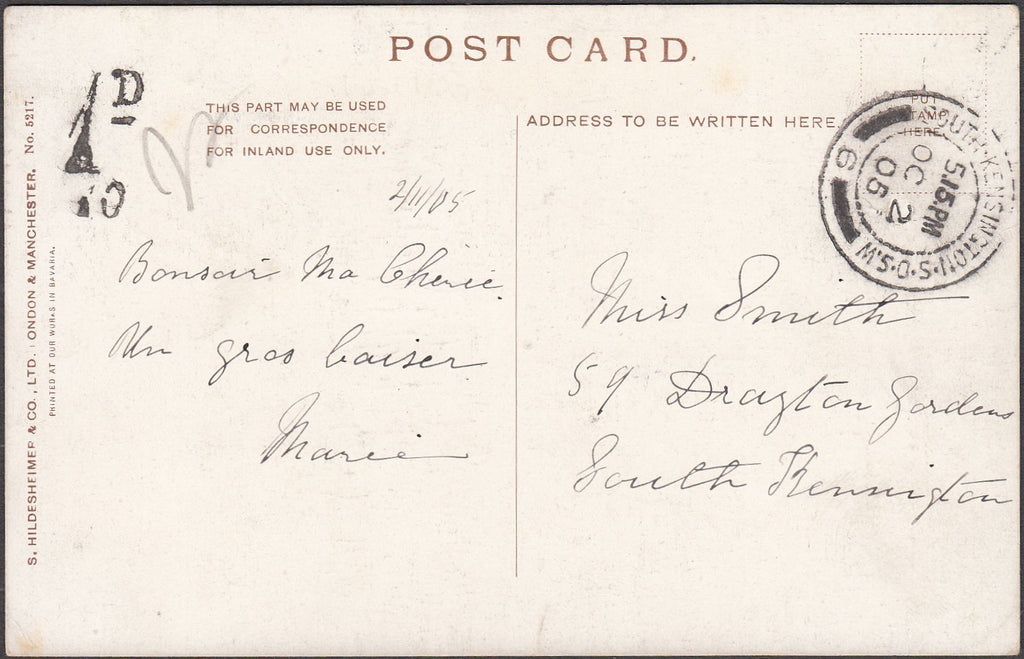 POST CARD.
THIS PART MAY BE USED
FOR CORRESPONDENCE
FOR INLAND USE ONLY.
ADDRESS TO BE WRITTEN HERE.
PUT
STAMP
HERE
SOUTH·KENSINGTON·S.O·S.W.
5.15.PM
OC 2
05
6
1D
10
2/11/05
Bonsoir Ma Cherie
Un gros baiser
Marie
Miss Smith
59 Drayton Gardens
South Kennington
S. HILDESHEIMER & CO., LTD. LONDON & MANCHESTER. No. 5217.
PRINTED AT OUR WORKS IN BAVARIA.